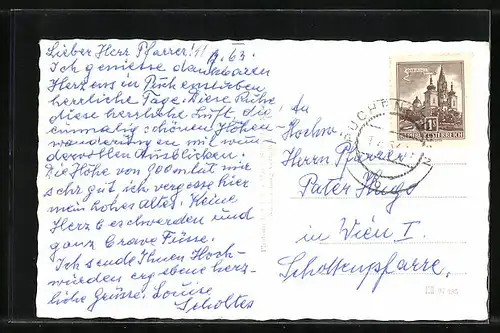 Lieber Herr Pfarrer! 11/9.63.
Ich geniesse dankbaren
Herzens in Puchenstuben
herrliche Tage. Diese Ruhe
diese herrliche Luft, die
einmalig schönen Höhen-
wanderungen mit wun-
dervollen Ausblicken.
Die Höhe von 900 m tut mir
sehr gut ich vergesse hier
mein hohes Alter. Keine
Herzbeschwerden und
ganz brave Füsse.
Ich sende Ihnen Hoch-
würden ergebene herz-
liche Grüsse. Louise
Scholtes
An
Hochw.
Herrn Pfarrer
Pater Hugo
in Wien I.
Schottenpfarre.
REPUBLIK ÖSTERREICH
PUCHEN